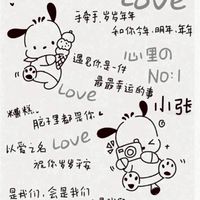 Love
手牵手,岁岁年年
和你今年.明年.年年
遇见你是一件
最最幸运的事
心里の
NO:1
Love
糟糕
脑子里都是你
小张
以爱之名
Love
祝你岁岁平安
是我们,会是我们